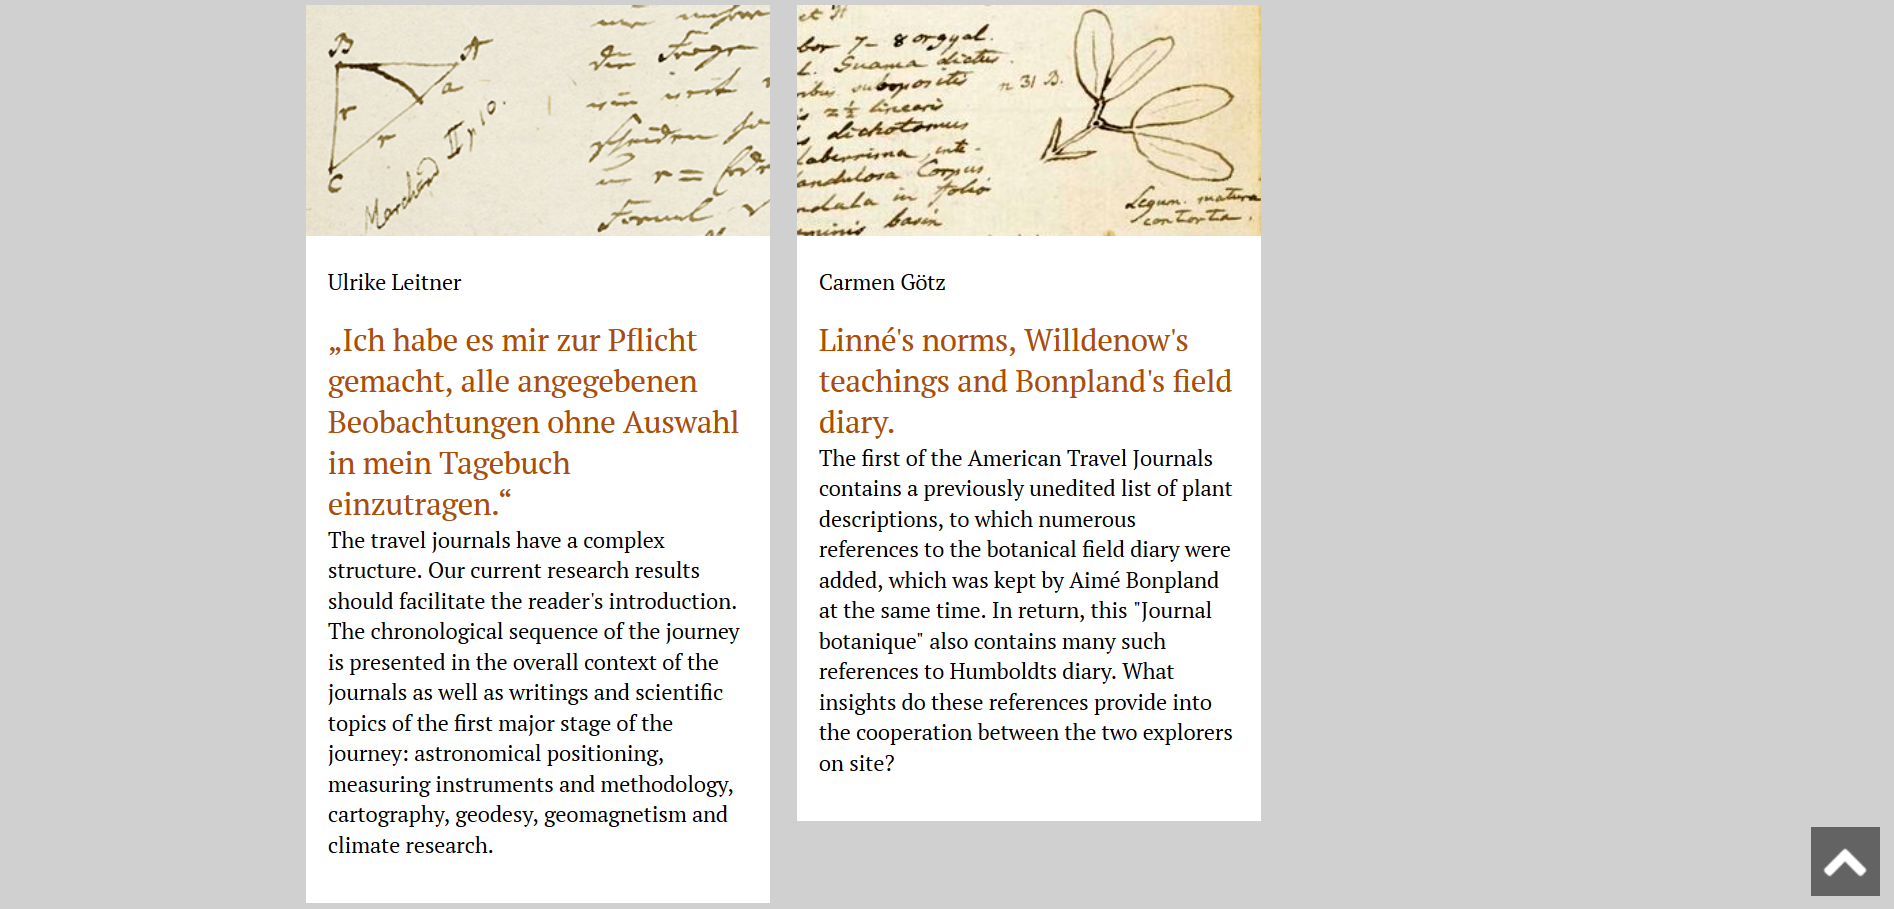 B
A
a
r
r
C
Marchand II p 10.
der Frage
r =
Formel
et
bor 7- 8 orgyal.
L. Guama dictus
suboppositis
n 31 B.
2½ linearis
dichotomus
laberrima, inte-
andulosa Corpus
in folio
basin
Legum. matura
contorta.
Ulrike Leitner
„Ich habe es mir zur Pflicht
gemacht, alle angegebenen
Beobachtungen ohne Auswahl
in mein Tagebuch
einzutragen.“
The travel journals have a complex
structure. Our current research results
should facilitate the reader's introduction.
The chronological sequence of the journey
is presented in the overall context of the
journals as well as writings and scientific
topics of the first major stage of the
journey: astronomical positioning,
measuring instruments and methodology,
cartography, geodesy, geomagnetism and
climate research.
Carmen Götz
Linné's norms, Willdenow's
teachings and Bonpland's field
diary.
The first of the American Travel Journals
contains a previously unedited list of plant
descriptions, to which numerous
references to the botanical field diary were
added, which was kept by Aimé Bonpland
at the same time. In return, this "Journal
botanique" also contains many such
references to Humboldts diary. What
insights do these references provide into
the cooperation between the two explorers
on site?